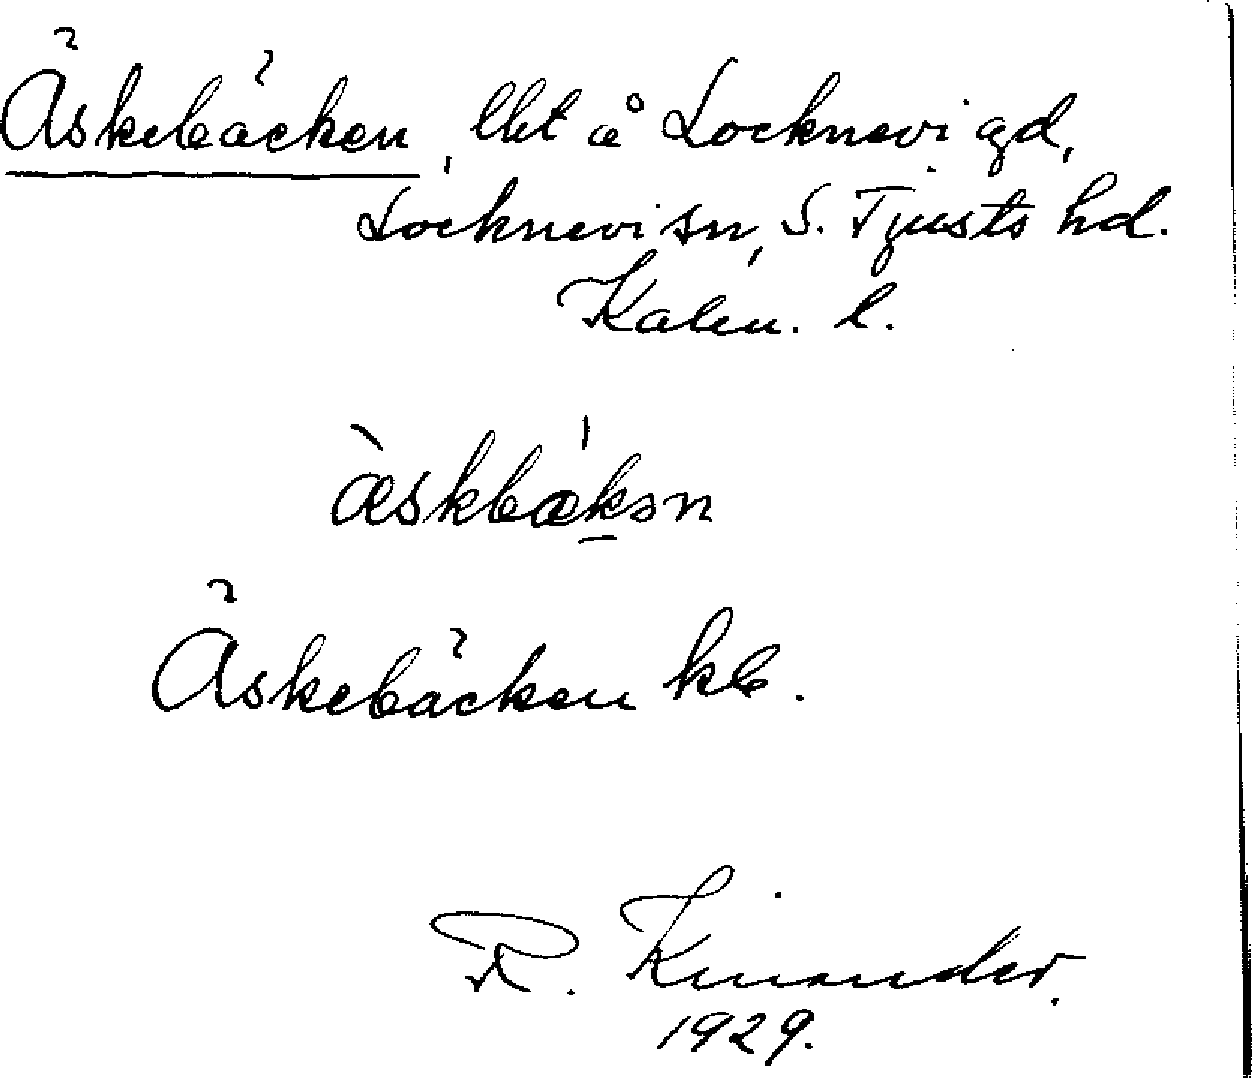 Äskebäcken, lht å Locknevi gd,
Locknevi sn, S. Tjusts hd.
Kalm. l.
æ̀skbǽkən
Äskebäcken kb.
R. Kinander.
1929.